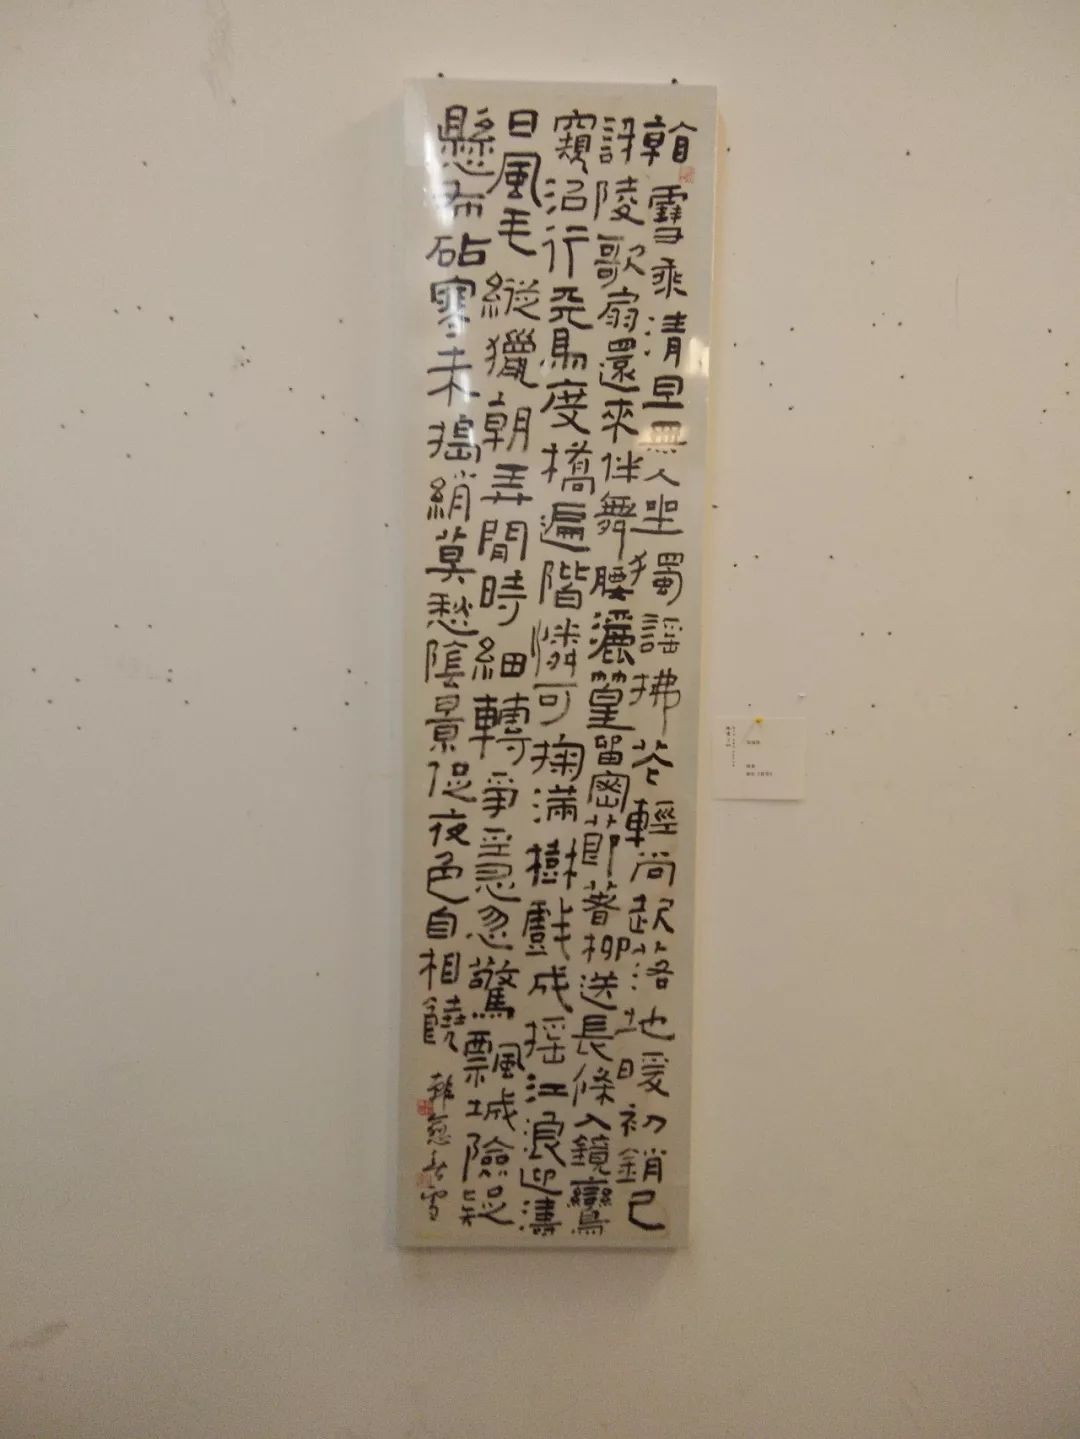 看雪乘清旦無人坐獨謠拂花輕尚起落地暖初銷已
訝陵歌扇還來伴舞腰灑篁留密節著柳送長條入鏡鸞
窺沼行天馬度橋遍階憐可掬滿樹戲成搖江浪迎濤
日風毛縱獵朝弄閒時細轉爭急忽驚飄城險疑
懸布砧寒未搗綃莫愁陰景促夜色自相饒
韓愈春雪